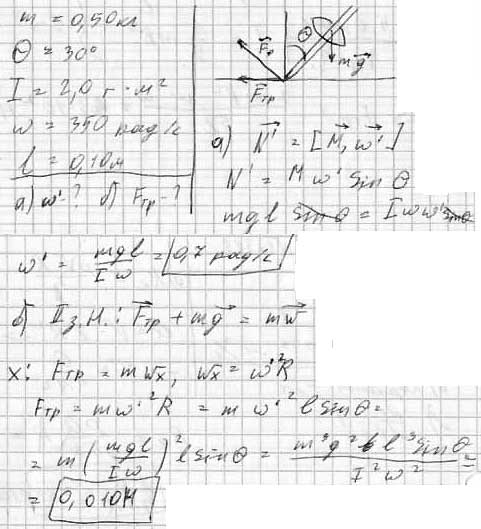 m = 0,50 кг
Θ = 30°
I = 2,0 г·м²
w = 350 рад/с
l = 0,10 м
а) w'-? б) Fтр-?
Fр
Θ
mg
Fтр
а) N' = [M, w']
N' = M w' sin Θ
mgl sinΘ = I w w' sinΘ
w' = mgl / I w = 0,7 рад/с
б) II з.Н.: Fтр + mg = mw
x: Fтр = m wx, wx = w'²R
Fтр = m w'² R = m w'² l sinΘ =
= m (mgl / I w)² l sinΘ = m³ g² l³ sinΘ / I² w² =
= 0,010 Н